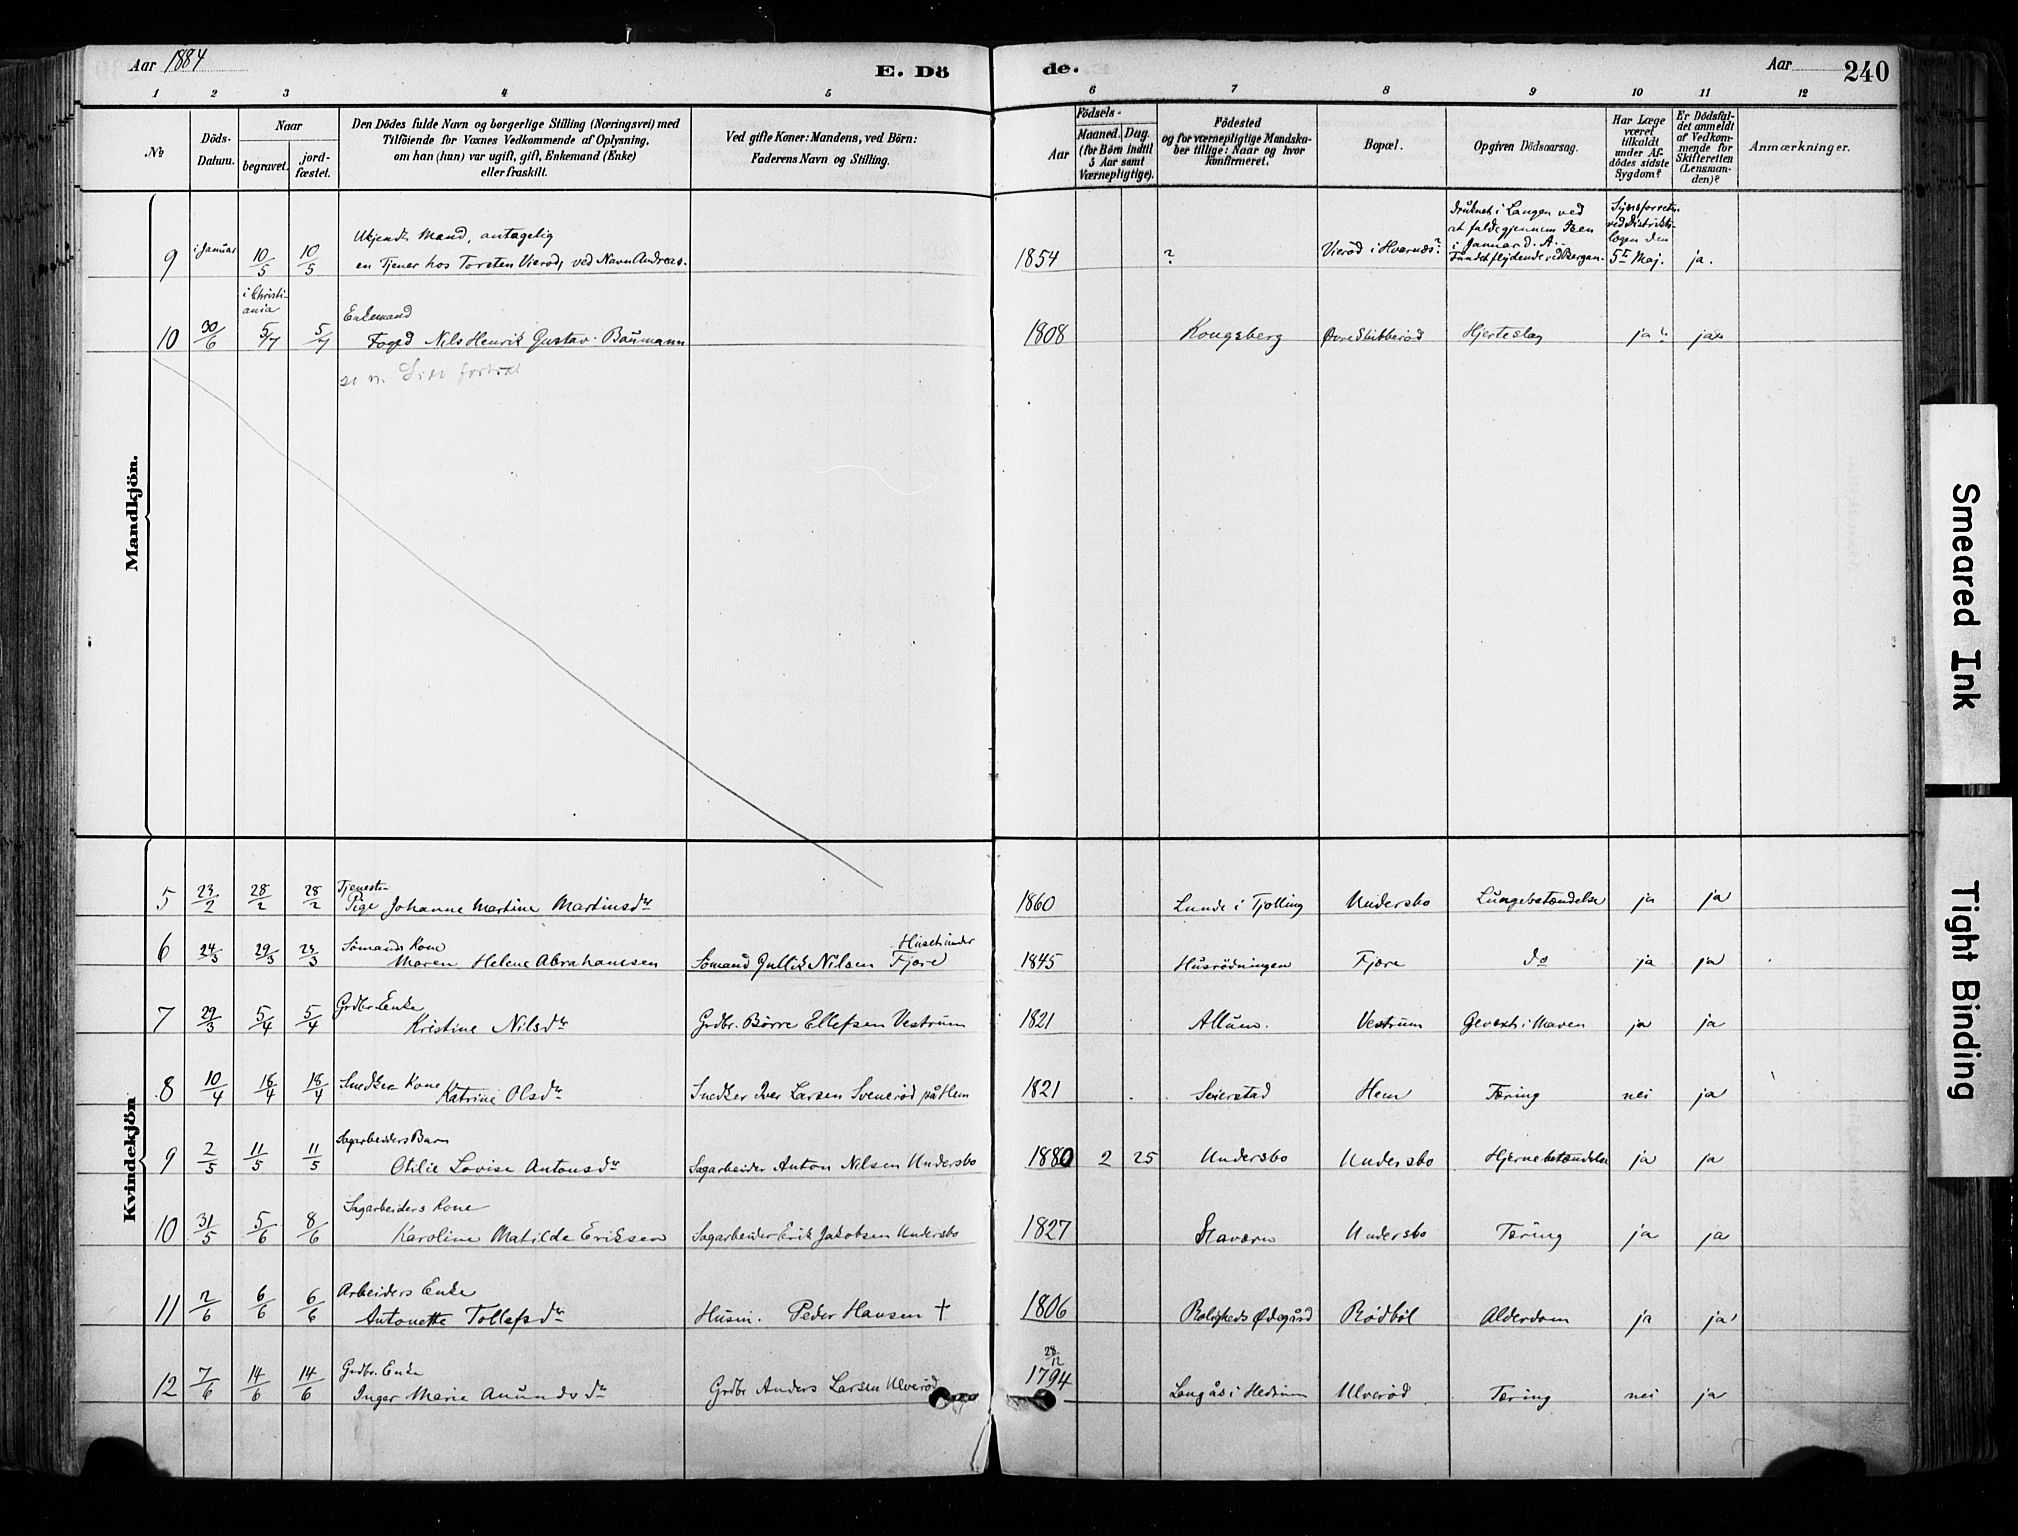 Aar 1884
E. Dö
de.
Aar
240
1 2 3 4 5 6 7 8 9 10 11 12
№
Döds-Datum.
Naar
begravet.
jord-fæstet.
Den Dödes fulde Navn og borgerlige Stilling (Næringsvei) med
Tilföiende for Voxnes Vedkommende af Oplysning,
om han (hun) var ugift, gift, Enkemand (Enke)
eller fraskilt.
Ved gifte Koner: Mandens, ved Börn:
Faderens Navn og Stilling.
Födsels-
Aar
Maaned. Dag.
(for Börn indtil
5 Aar samt
Værnepligtige).
Födested
og for værnepligtige Mandska-
ber tillige: Naar og hvor
konfirmeret.
Bopæl.
Opgiven Dödsaarsag.
Har Læge
været
tilkaldt
under Af-
dödes sidste
Sygdom?
Er Dödsfal-
det anmeldt
af Vedkom-
mende for
Skifteretten
(Lensman-
den)?
Anmærkninger.
Mandkjön.
9 i Januar 10/5 10/5 Ukjendt Mand, antagelig
en Tjener hos Torsten Vierød, ved Navn Andreas. 1854 ? Vierød i Hvarnæs? Druknet i Langen ved
at falde gjennem Isen
i Januar d. A.
Fundet flydende ved Bergan.
ved Distrikts-
lægen den
5te Maj. ja.
10 30/6 i Christi-
ania
5/7 5/7 Enkemand
Foged Nils Henrik Gustav Baumann 1808 Kongsberg Øvre Hjerteslag ja
Kvindekjön
5 23/2 28/2 28/2 Tjeneste-
Pige Johanne Martine Martinsdr 1860 Lunde i Tjølling Undersbo Lungebetændelse ja ja
6 24/3 29/3 Sømands Kone
Maren Helene Abrahamsen Sømand Gullik Nilsen Fjære 1845 Husrödningen Fjære do ja ja
7 29/3 5/4 5/4 Grdbr. Enke
Kristine Nilsdr Grdbr. Børre Ellefsen Vestrum 1821 Allum. Vestrum Gevext i Maven ja ja
8 10/4 18/4 18/4 Snedker Kone
Katrine Olsdr Snedker Iver Larsen Svenerød på Hem 1821 Seierstad Hem Tæring nei ja
9 2/5 11/5 11/5 Sagarbeiders Barn
Otilie Lovise Antonsdr Sagarbeider Anton Nilsen Undersbo 1880 2 25 Undersbo Undersbo Hjernebetændelse ja ja
10 31/5 5/6 8/6 Sagarbeiders Kone
Karoline Matilde Eriksen Sagarbeider Erik Jakobsen Undersbo 1827 Staværn Undersbo Tæring ja ja
11 2/6 6/6 6/6 Arbeiders Enke
Antonette Tollefsdr Husm. Peder Hansen † 1806 Roligheds Ødegård Rødbøl Alderdom ja ja
12 7/6 14/6 14/6 Grdbr. Enke
Inger Marie Anundsdr Grdbr Anders Larsen Ulverød 28/12
1794 Langås i Hedrum Ulverød Tæring nei ja
Smeared Ink
Tight Binding